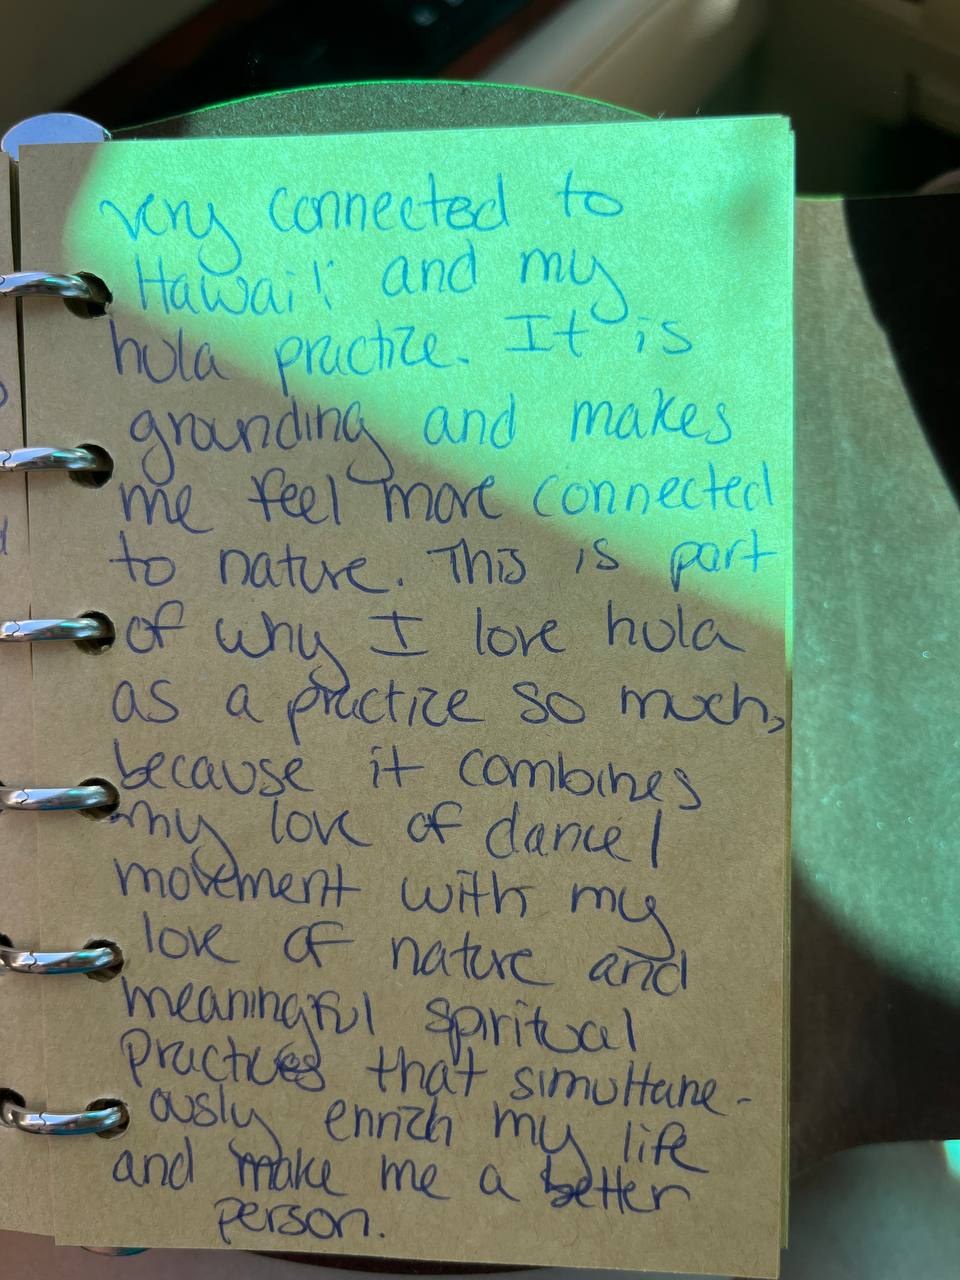 very connected to
Hawai'i and my
hula practice. It is
grounding and makes
me feel more connected
to nature. This is part
of why I love hula
as a practice so much,
because it combines
my love of dance/
movement with my
love of nature and
meaningful spiritual
practices that simultane-
ously enrich my life
and make me a better
person.